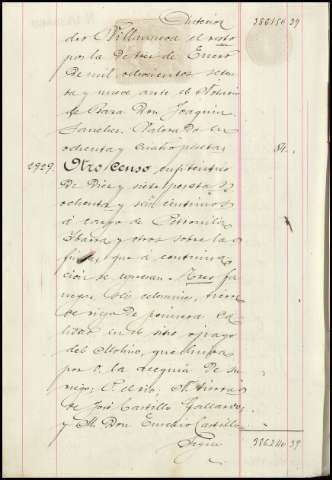 Anterior 386150 39
dro Villanueva el resto
por la de tres de Enero
de mil ochocientos seten
ta y nueve ante el Notario
de Baza Don Joaquin
Sanchez. Valorado en
ochenta y cuatro pesetas 84
1929. Otro Censo enfiteutico
de diez y siete pesetas
ochenta y seis centimos
á cargo de Petronila
Ibarra y otros sobre las
fincas que á continua
ción se expresan. Tres fa
negas seis celemines, tierra
de riego de primera ca
lidad en el sitio ó pago
del Molino, que linda
por S. la acequia de su
riego; P. el rio, N. tierras
de José Castillo Gallardo
y M. Don Eusebio Castillo
Sigue 386240 39